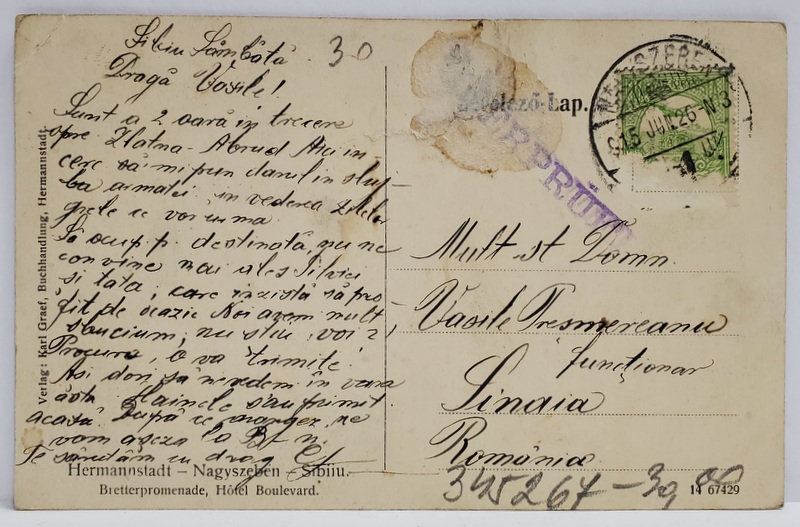 Sibiu Sâmbătă
30
Dragă Vasile!
Sunt a 2 oară în trecere
spre Zlatna-Abrud Aici în
cere să-mi pun darul în sluj
ba armatei în vederea zilelor
grele ce vor urma
Să ocup p. destinată, nu ne
convine mai ales Silviei
si tata, care insistă să pro
fit de ocazie Noi avem mult
nu știu, voi?
Procura, o va trimite.
Asi dori să ne vedem în vara
asta. Hainele s'au primit
acasă. După ce aranjez, ne
vom așeza la
Te sărutăm cu drag
Verlag: Karl Graef, Buchhandlung, Hermannstadt.
Hermannstadt – Nagyszeben – Sibiiu.
Bretterpromenade, Hôtel Boulevard.
Levelező-Lap.
NAGYSZEBEN
915 JUN. 26 N 3
ÜBERPRÜFT
Mult st Domn.
Vasile Tresmereanu
funcționar
Sinaia
România
345267-39
14 67429